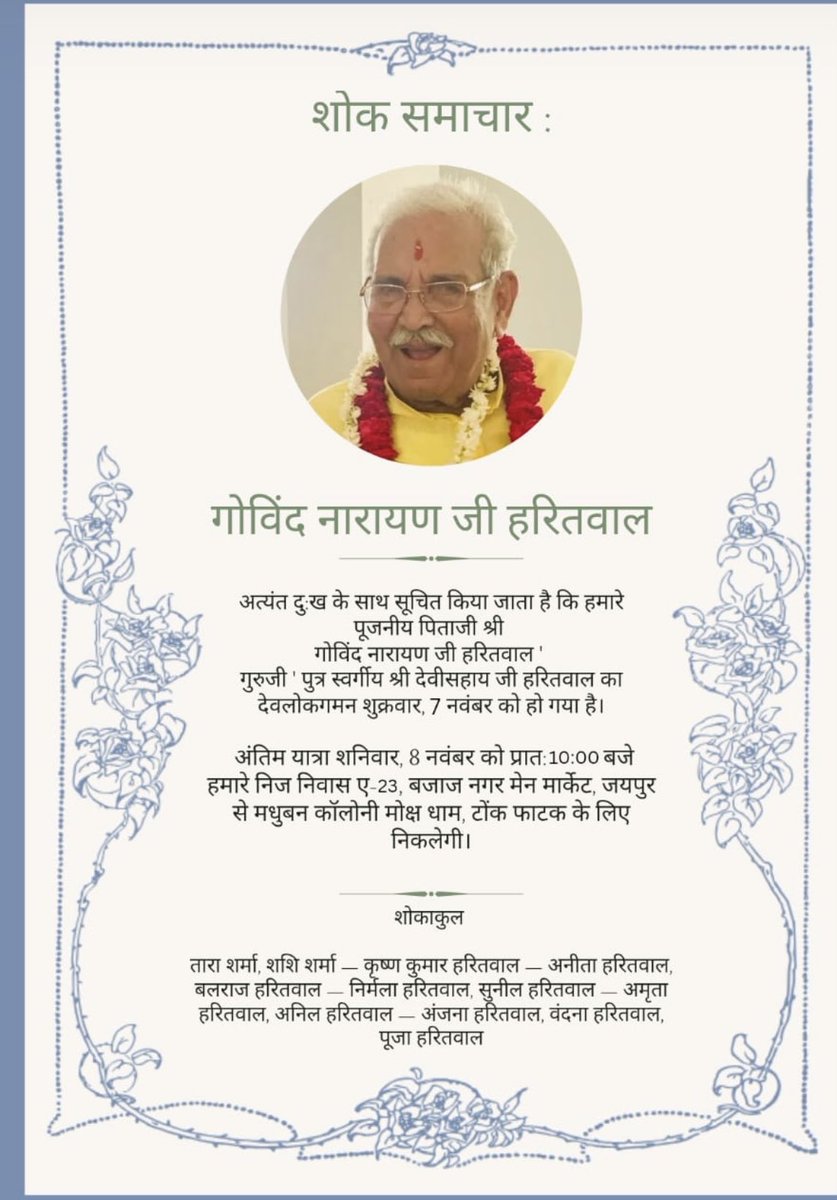 शोक समाचार :
गोविंद नारायण जी हरितवाल
अत्यंत दुःख के साथ सूचित किया जाता है कि हमारे
पूजनीय पिताजी श्री
गोविंद नारायण जी हरितवाल '
गुरुजी ' पुत्र स्वर्गीय श्री देवीसहाय जी हरितवाल का
देवलोकगमन शुक्रवार, 7 नवंबर को हो गया है।
अंतिम यात्रा शनिवार, 8 नवंबर को प्रात:10:00 बजे
हमारे निज निवास ए-23, बजाज नगर मेन मार्केट, जयपुर
से मधुबन कॉलोनी मोक्ष धाम, टोंक फाटक के लिए
निकलेगी।
शोकाकुल
तारा शर्मा, शशि शर्मा — कृष्ण कुमार हरितवाल — अनीता हरितवाल,
बलराज हरितवाल — निर्मला हरितवाल, सुनील हरितवाल — अमृता
हरितवाल, अनिल हरितवाल — अंजना हरितवाल, वंदना हरितवाल,
पूजा हरितवाल